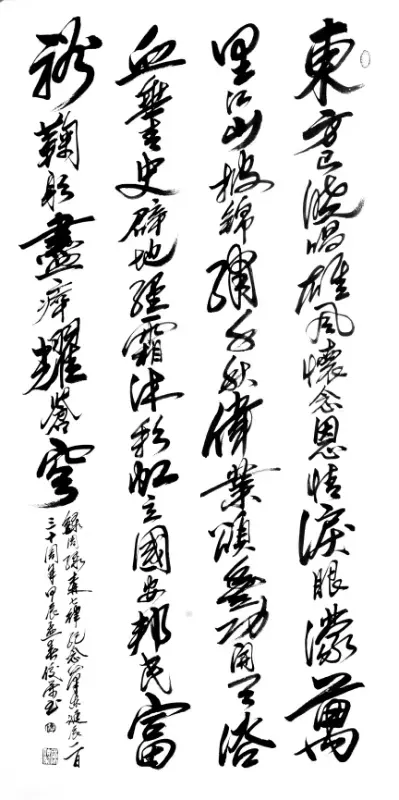 東方已曉唱雄風懷念恩情淚眼濛萬
里江山披錦繡千秋偉業頌豐功開天浴
血垂青史辟地經霜沐彩虹立國安邦民富
裕鞠躬盡瘁耀蒼穹
錄周森七律紀念毛澤東誕辰一百
三十周年甲辰孟春俊榮書